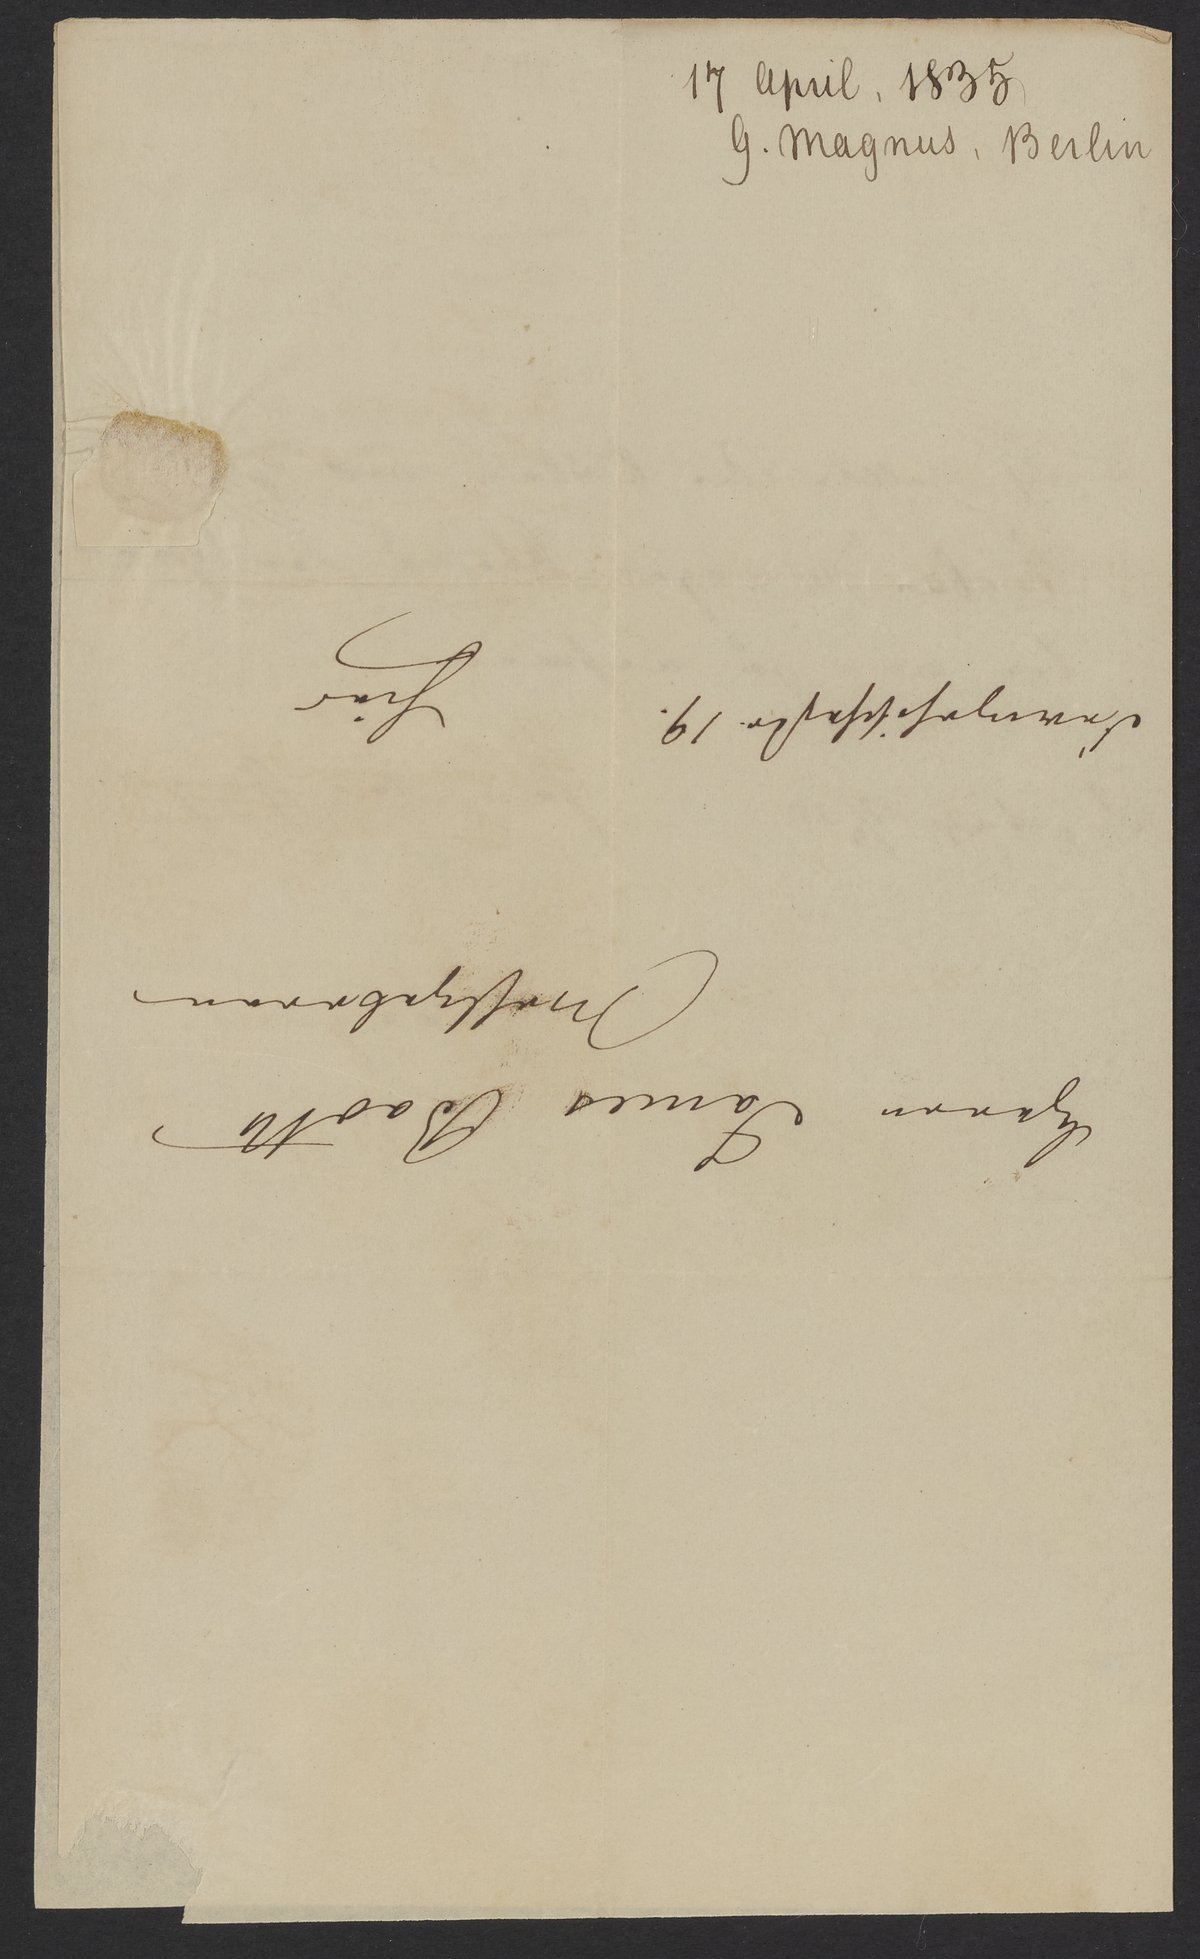 17 April, 1835
G. Magnus, Berlin
Herrn James Booth
Wohlgeboren
hier
19.